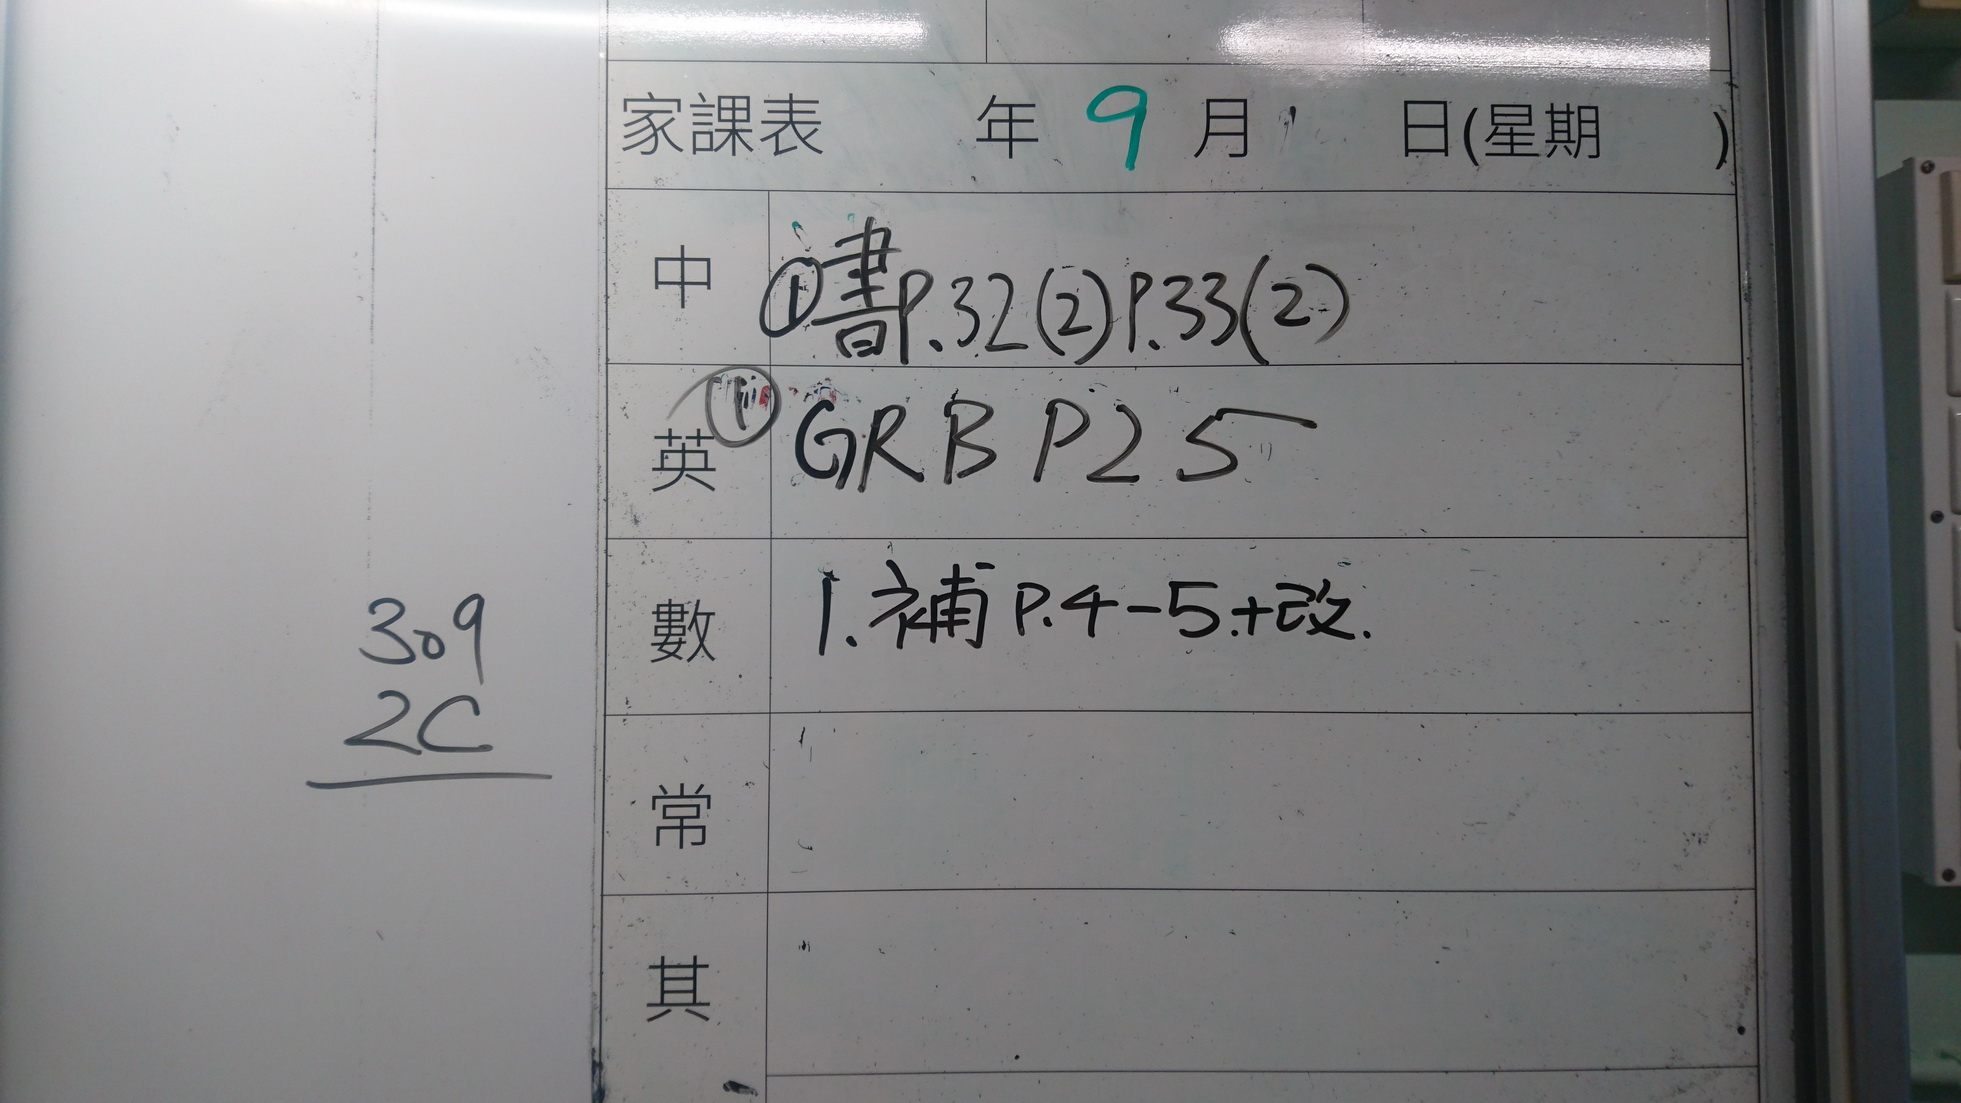 家課表 年 9 月 日(星期 )
中 ①書P.32(2)P.33(2)
英 ① GRB P25
數 1.補P.4-5.+改.
常
其
309
2C